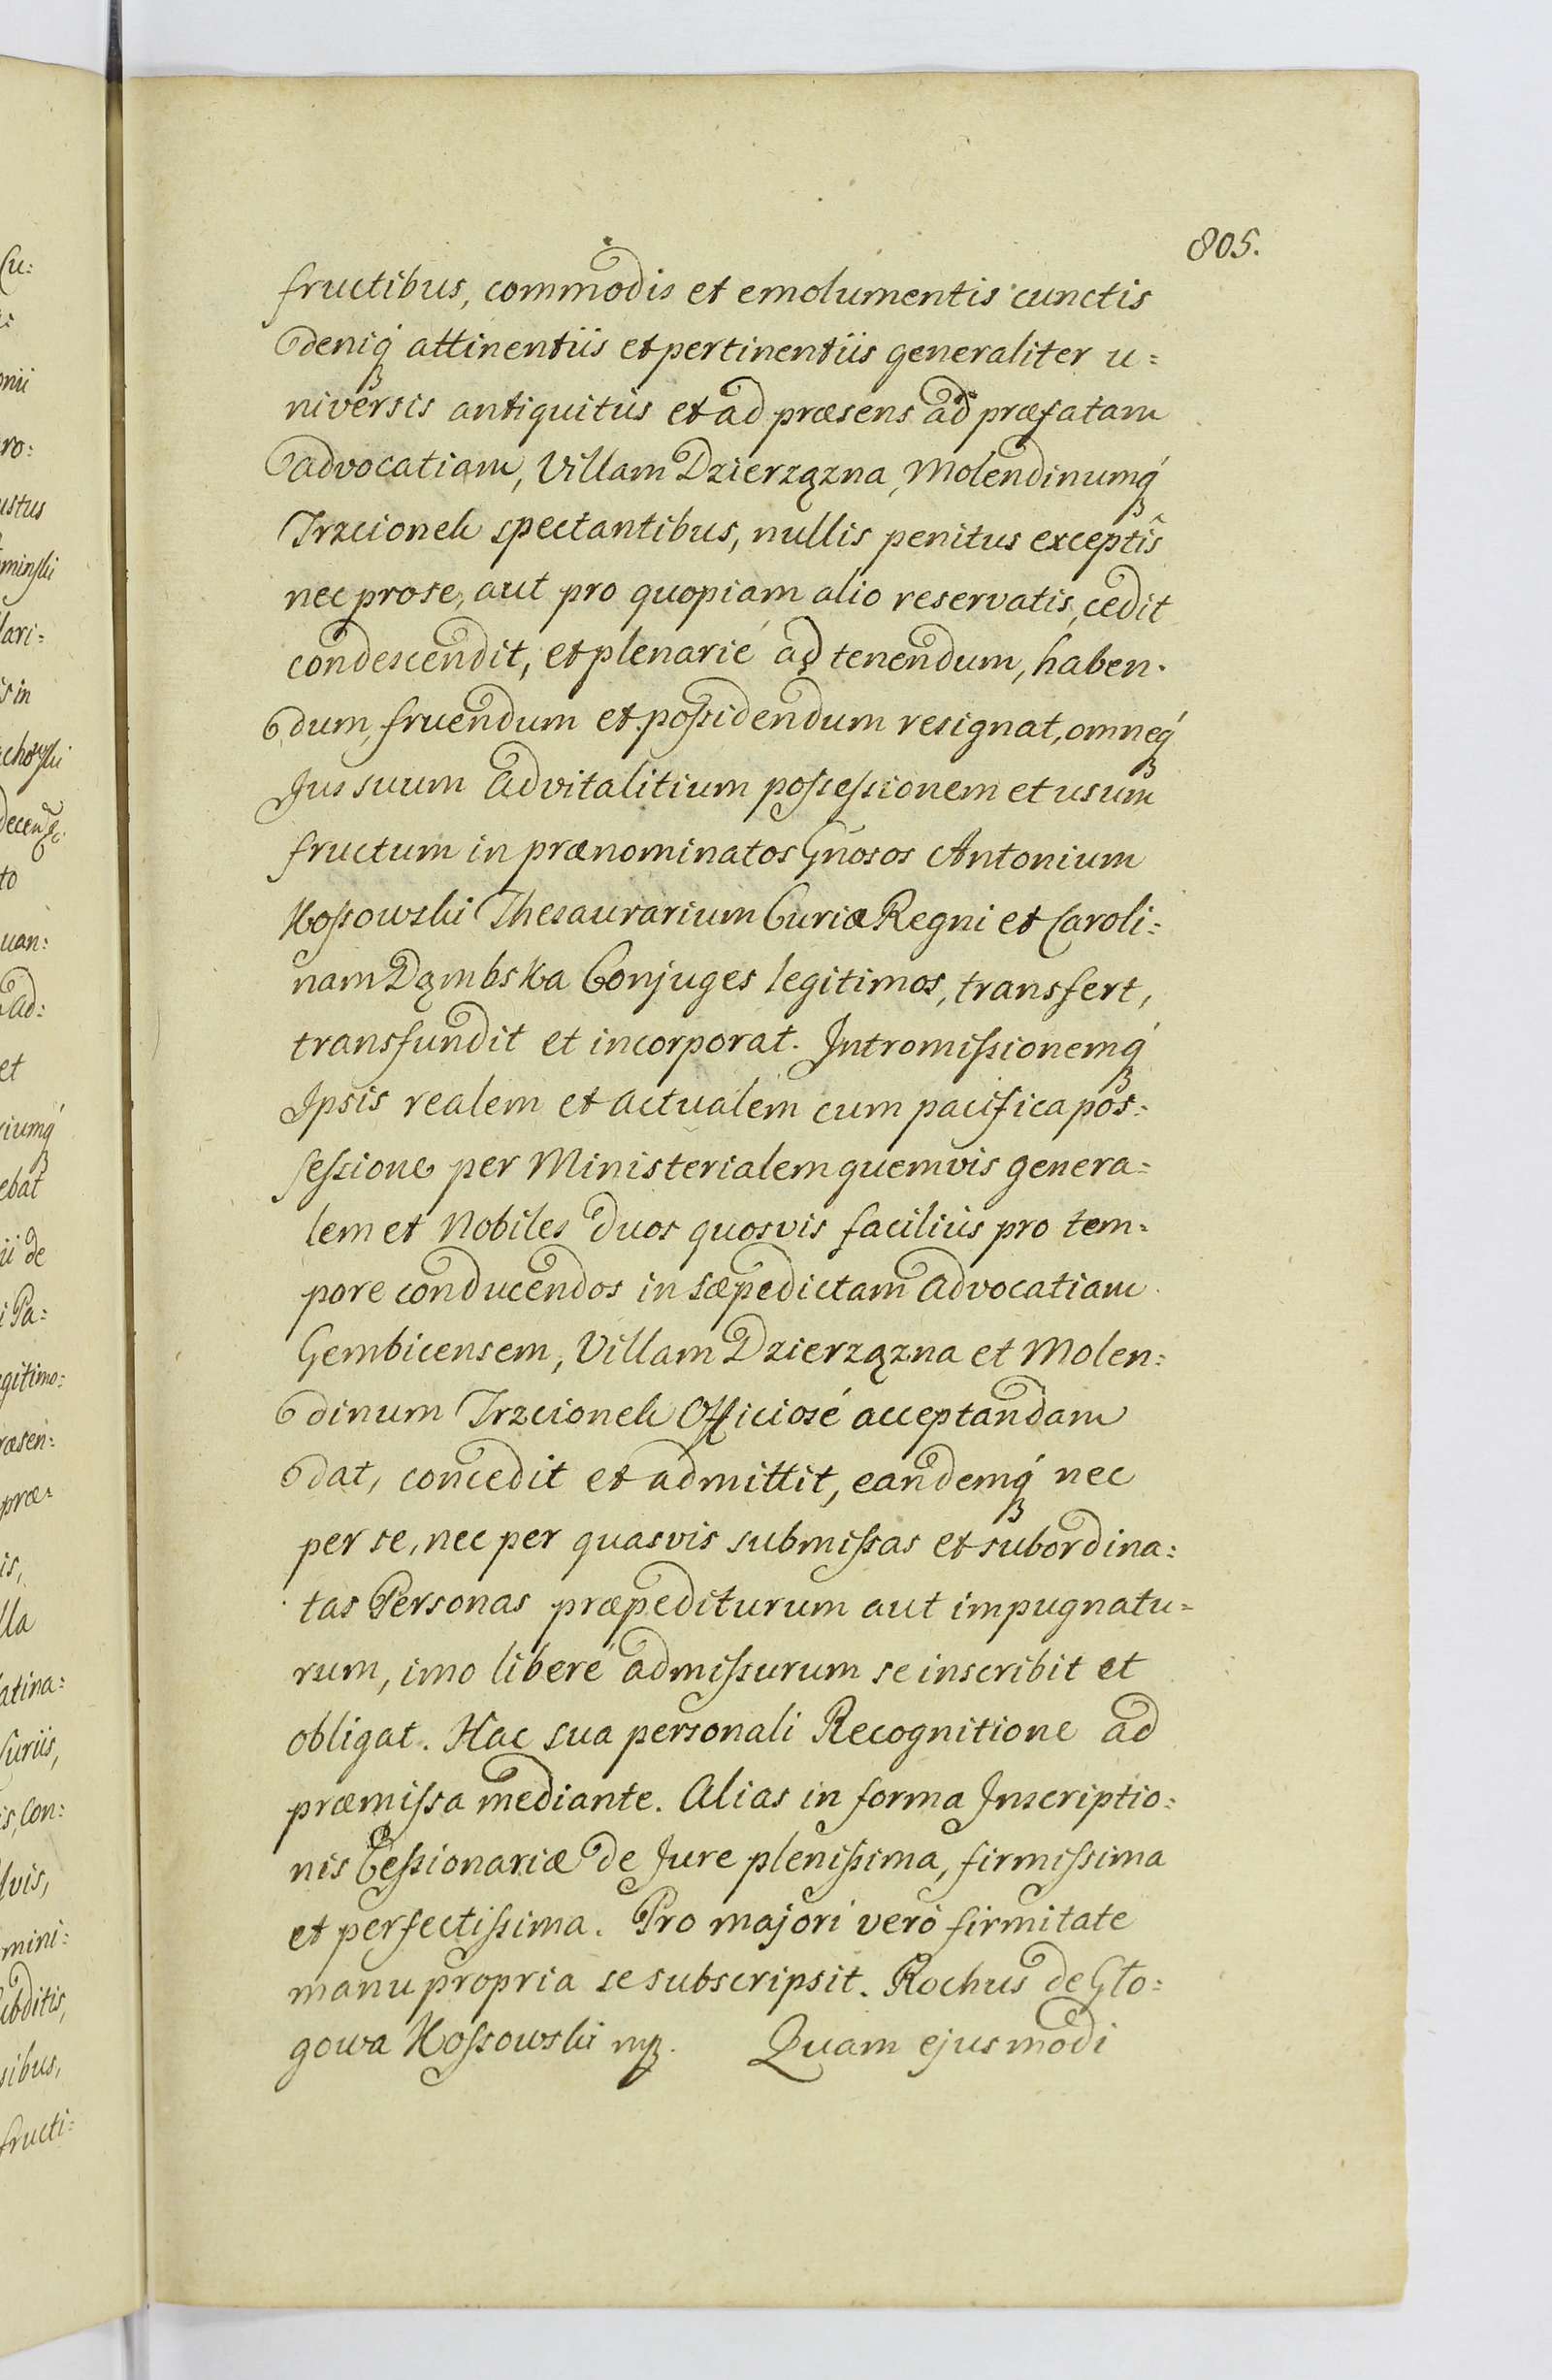 805.
fructibus, commodis et emolumentis cunctis
deniq́ꝫ attinentiis et pertinentiis generaliter u=
niversis antiquitùs et ad præsens ad præfatam
advocatiam, Villam Dzierzązna, Molendinumq́ꝫ
Trzcionek spectantibus, nullis penitus exceptis
nec pro se, aut pro quopiam alio reservatis, cedit
condescendit, et plenarié ad tenendum, haben=
dum, fruendum et possidendum resignat, omneq́ꝫ
Jus suum advitalitium possessionem et usum
fructum in prænominatos Gnosos Antonium
Kossowski Thesaurarium Curiæ Regni et Caroli=
nam Dąmbska Conjuges legitimos, transfert,
transfundit et incorporat. Intromissionemq́ꝫ
Ipsis realem et actualem cum pacifica pos=
sessione per Ministerialem quemvis genera=
lem et Nobiles duos quosvis faciliùs pro tem=
pore conducendos in sæpedictam advocatiam
Gembicensem, Villam Dzierzązna et Molen=
dinum Trzcionek Officiosé acceptandam
dat, concedit et admittit, eandemq́ꝫ nec
per se, nec per quasvis submissas et subordina=
tas Personas præpediturum aut impugnatu=
rum, imo liberé admissurum se inscribit et
obligat. Hac sua personali Recognitione ad
præmissa mediante. Alias in forma Inscriptio=
nis Cessionariæ de Jure plenissima, firmissima
et perfectissima. Pro majori veró firmitate
manu propria se subscripsit. Rochus de Gło=
gowa Kossowski mpꝫ. Quam ejusmodi